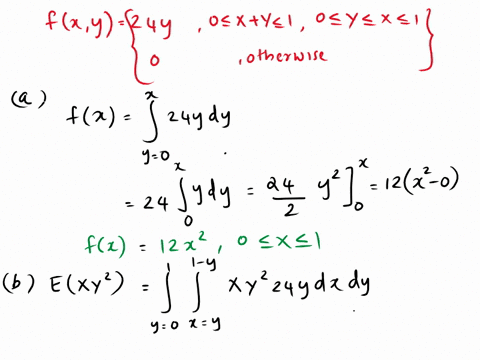 f(x,y) = { 24y , 0≤x+y≤1, 0≤y≤x≤1
0 , otherwise }
(a)
f(x) = ∫_{y=0}^{x} 24y dy
= 24 ∫_{0}^{x} y dy = 24/2 y²]_{0}^{x} = 12(x²-0)
f(x) = 12x², 0≤x≤1
(b) E(XY²) = ∫_{y=0}^{1} ∫_{x=y}^{1-y} xy² 24y dx dy